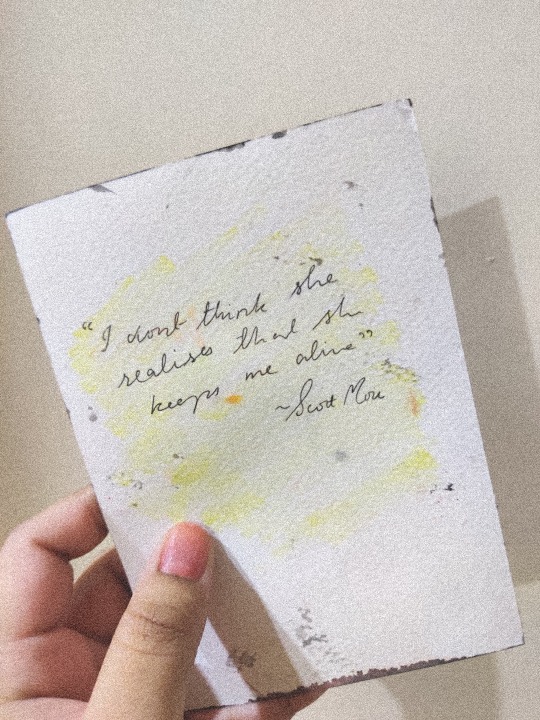 “I dont think she
realises that she
keeps me alive”
~Scott